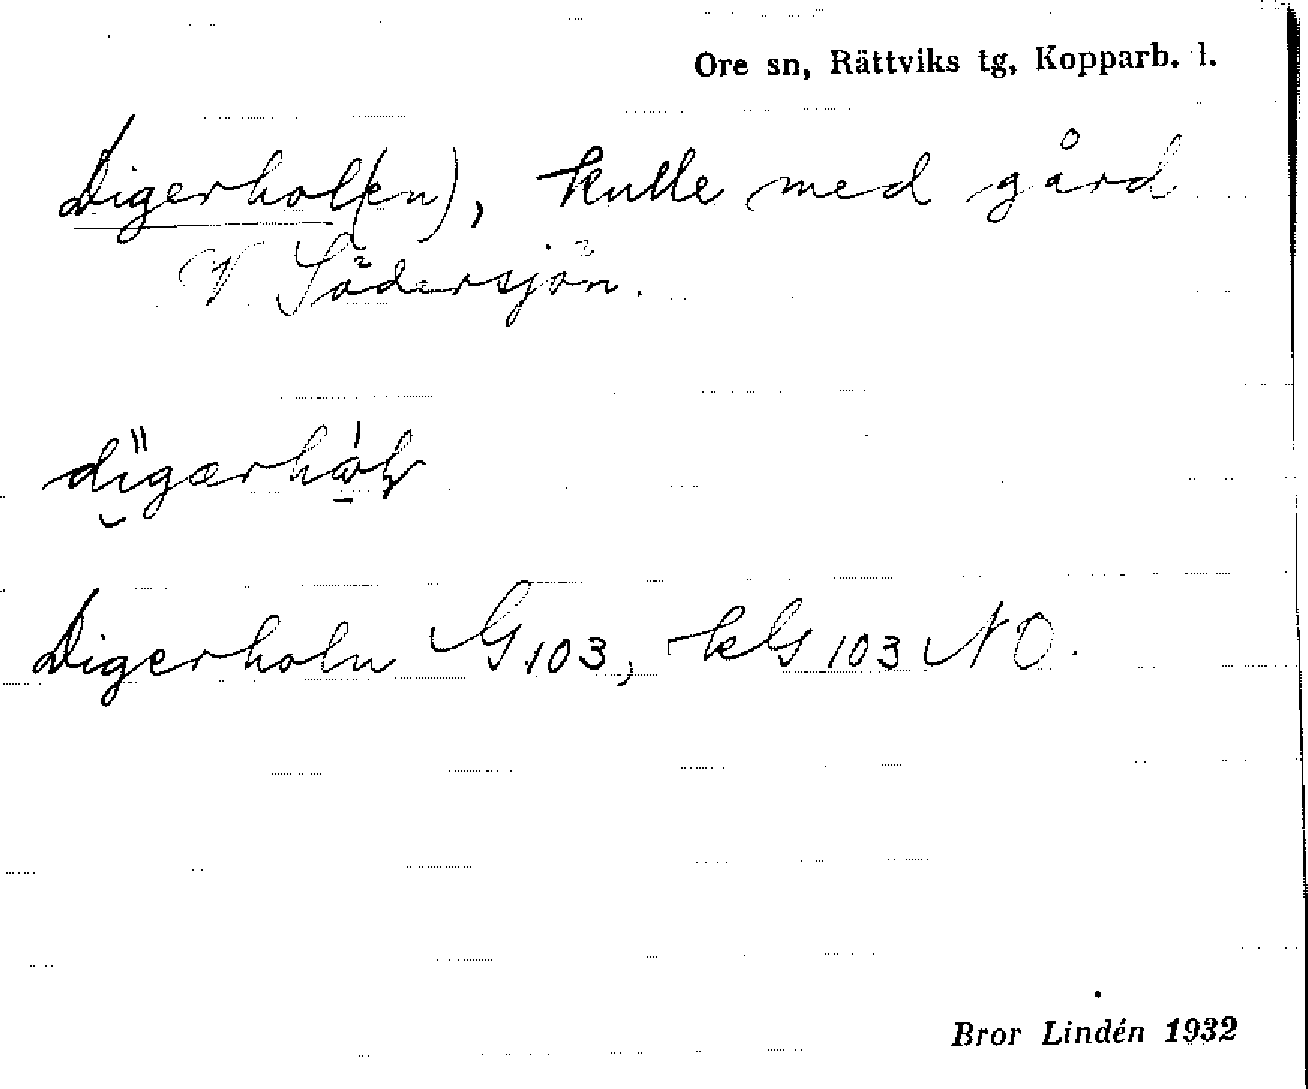 Ore sn, Rättviks tg, Kopparb. l.
Digerhol(en), kulle med gård
V Södersjön.
Digerholn G 103, kG 103 NO.
Bror Lindén 1932